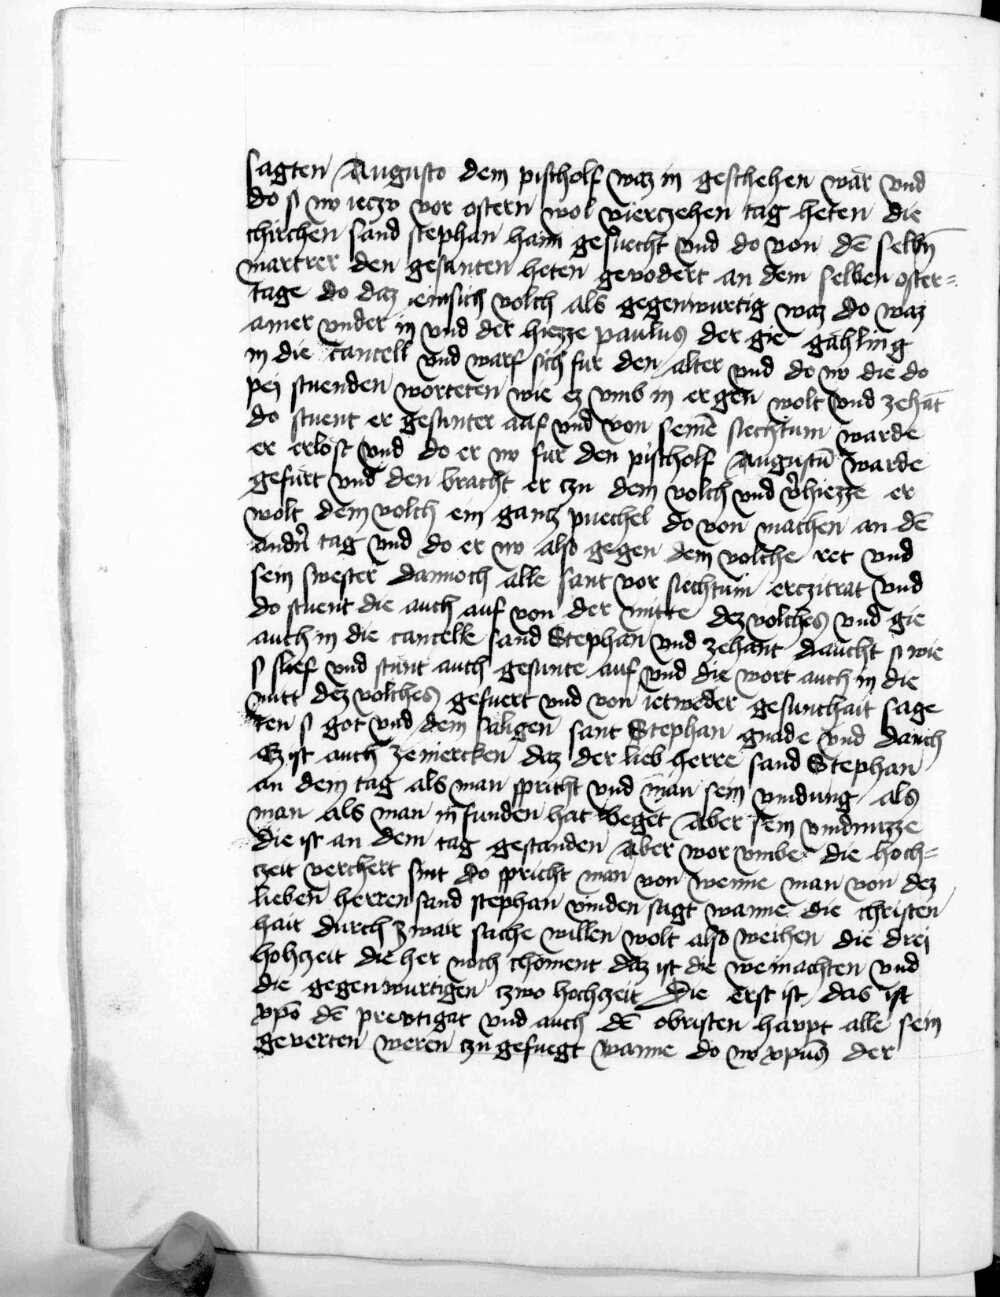 sagten Augusto dem pischolf waz in geschehen wär vnd
do s nw ieczv vor ostern wol vierczehen tag heten die
chirchen sand stephan haim gesuecht vnd do von dē selbn̄
martrer den gesunten heten gevodert an dem selben oster=
tage do daz einsich volch als gegenwurtig waz do waz
ainer vnder in vnd der hiezze paulus der gie gähling
in die cancell vnd warf sich fur den alter vnd do nw die do
pej stuenden worteten wie ez vmb in ergen wolt vnd zehāt
do stuent er gesunter auf vnd von seinē siechtum warde
er erlöst vnd do er nw fur den pischolf Augustū warde
gefürt vnd den bracht er czu dem volch vnd v̓hiezze er
wolt dem volch ein gantz puechel do von machen an dē
andn̄ tag vnd do er nw also gegen dem volche ret vnd
sein swester dannoch alle sant vor siechtum erczitrat vnd
do stuent die auch auf von der mitte dez volches vnd gie
auch in die cancelle sand Stephan vnd zehant daucht s wie
s slief vnd stunt auch gesunte auf vnd die wort auch in die
mitt dez volches gefuert vnd von ietweder gesunthait sage
ten s got vnd dem säligen sant Stephan gnade vnd danch
Ez ist auch zemercken daz der lieb herre sand Stephan
an dem tag als man spricht vnd man sein vindung als
man als man in funden hat beget Aber sein vindnuzze
die ist an dem tag gestanden Aber wor vmbe die hoch=
czeit verchert sint do spricht man von wenne man von dez
lieben herren sand stephan vinden sagt wanne die christen
hait durch zwair sache willen wolt also weihen die drej
hohczeit die her noch choment daz ist die weinachten vnd
die gegenwurtigen czwo hochzeit Die erst ist das ist
xpō dē prevtigat vnd auch dē obristen havpt alle sein
geverten weren czu gefuegt wanne do nw xpūs der